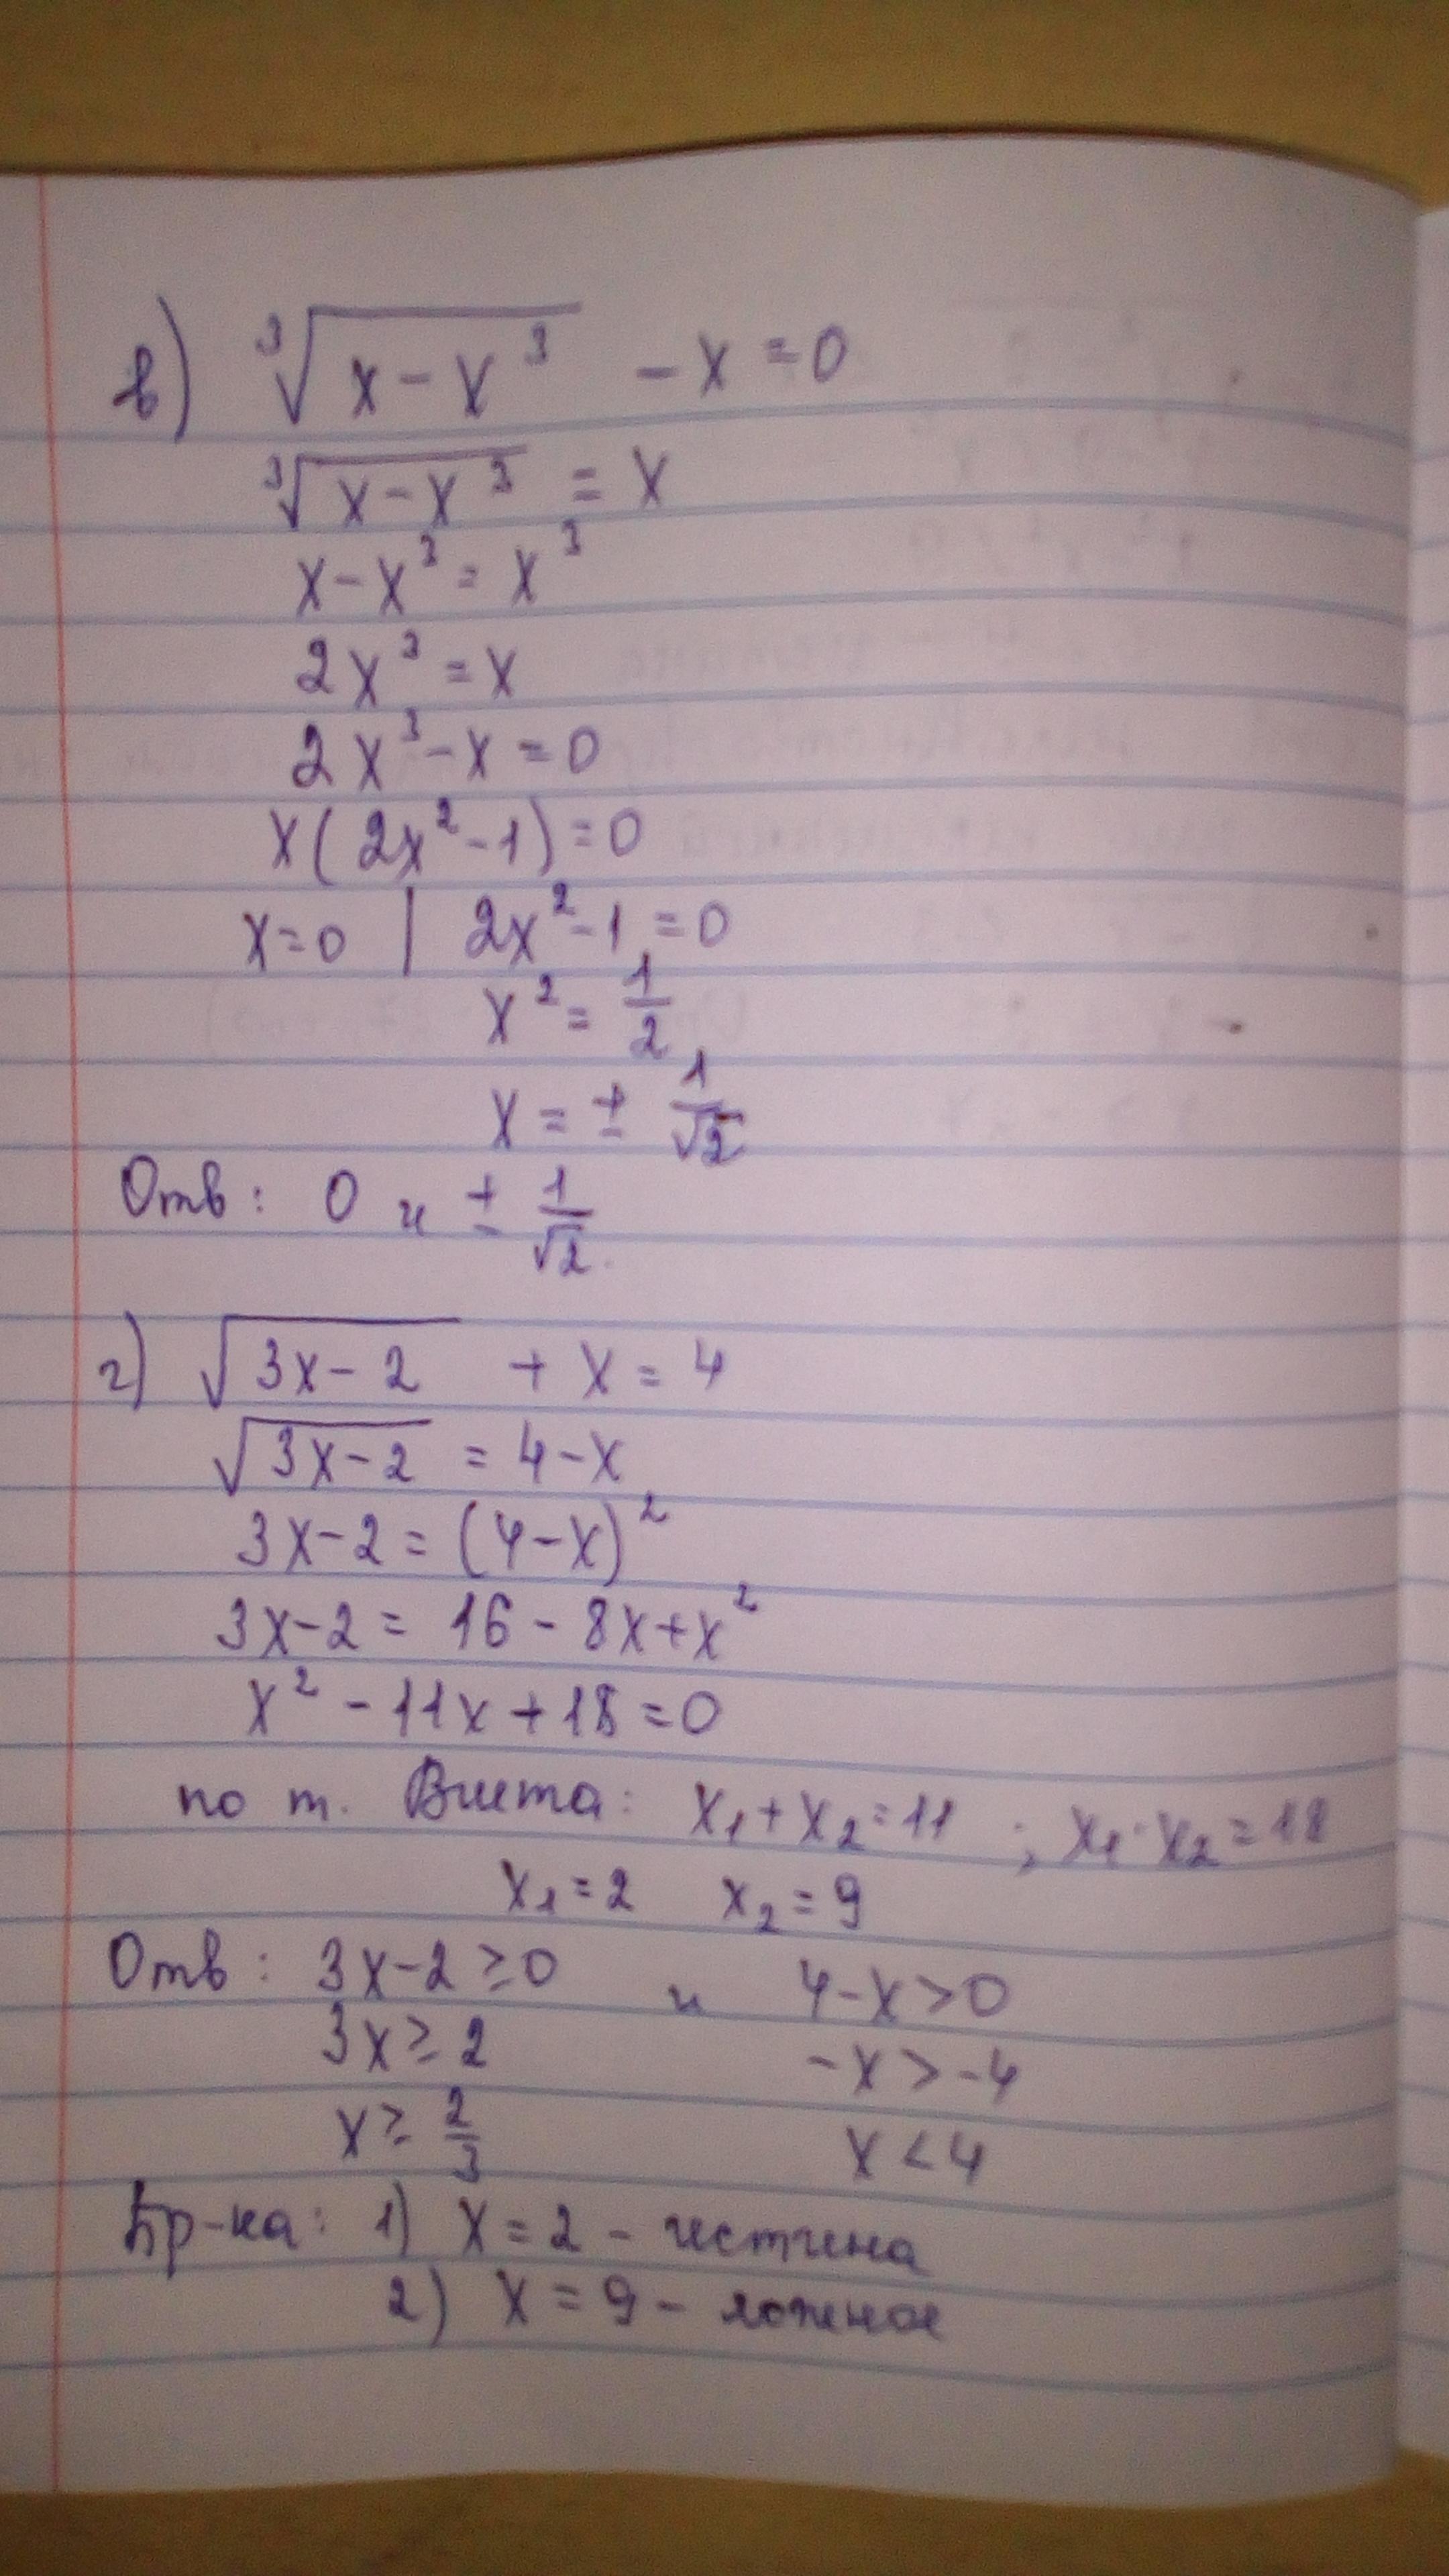 в) ∛(x-x³) - x = 0
∛(x-x³) = x
x-x³ = x³
2x³ = x
2x³-x = 0
x(2x²-1) = 0
x=0 | 2x²-1 = 0
x² = 1/2
x = ± 1/√2
Отв: 0 и ± 1/√2.
г) √(3x-2) + x = 4
√(3x-2) = 4-x
3x-2 = (4-x)²
3x-2 = 16 - 8x+x²
x² - 11x + 18 = 0
по т. Виета: x₁+x₂=11 ; x₁·x₂=18
x₁=2 x₂=9
Отв: 3x-2 ≥ 0 и 4-x > 0
3x ≥ 2 -x > -4
x ≥ 2/3 x < 4
Пр-ка: 1) x = 2 - истина
2) x = 9 - ложное